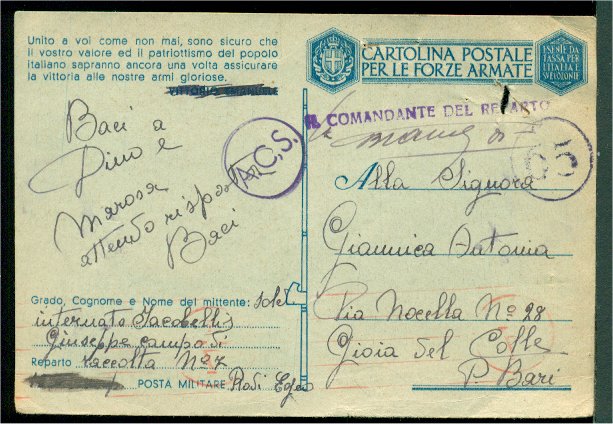 Unito a voi come non mai, sono sicuro che
il vostro valore ed il patriottismo del popolo
italiano sapranno ancora una volta assicurare
la vittoria alle nostre armi gloriose.
Baci a
Dino e
Marosa
attendo risposta
Baci
A.C.S.
Grado, Cognome e Nome del mittente: sole
internato Jacobellis
Giuseppe campo di
Reparto raccolta Nº 7
POSTA MILITARE Rodi Egeo
CARTOLINA POSTALE
PER LE FORZE ARMATE
ESENTE DA
TASSA PER
L'ITALIA
E LE COLONIE
IL COMANDANTE DEL REPARTO
Alla Signora
Giannica Antonia
Via Nocella Nº 28
Gioia del Colle
P. Bari